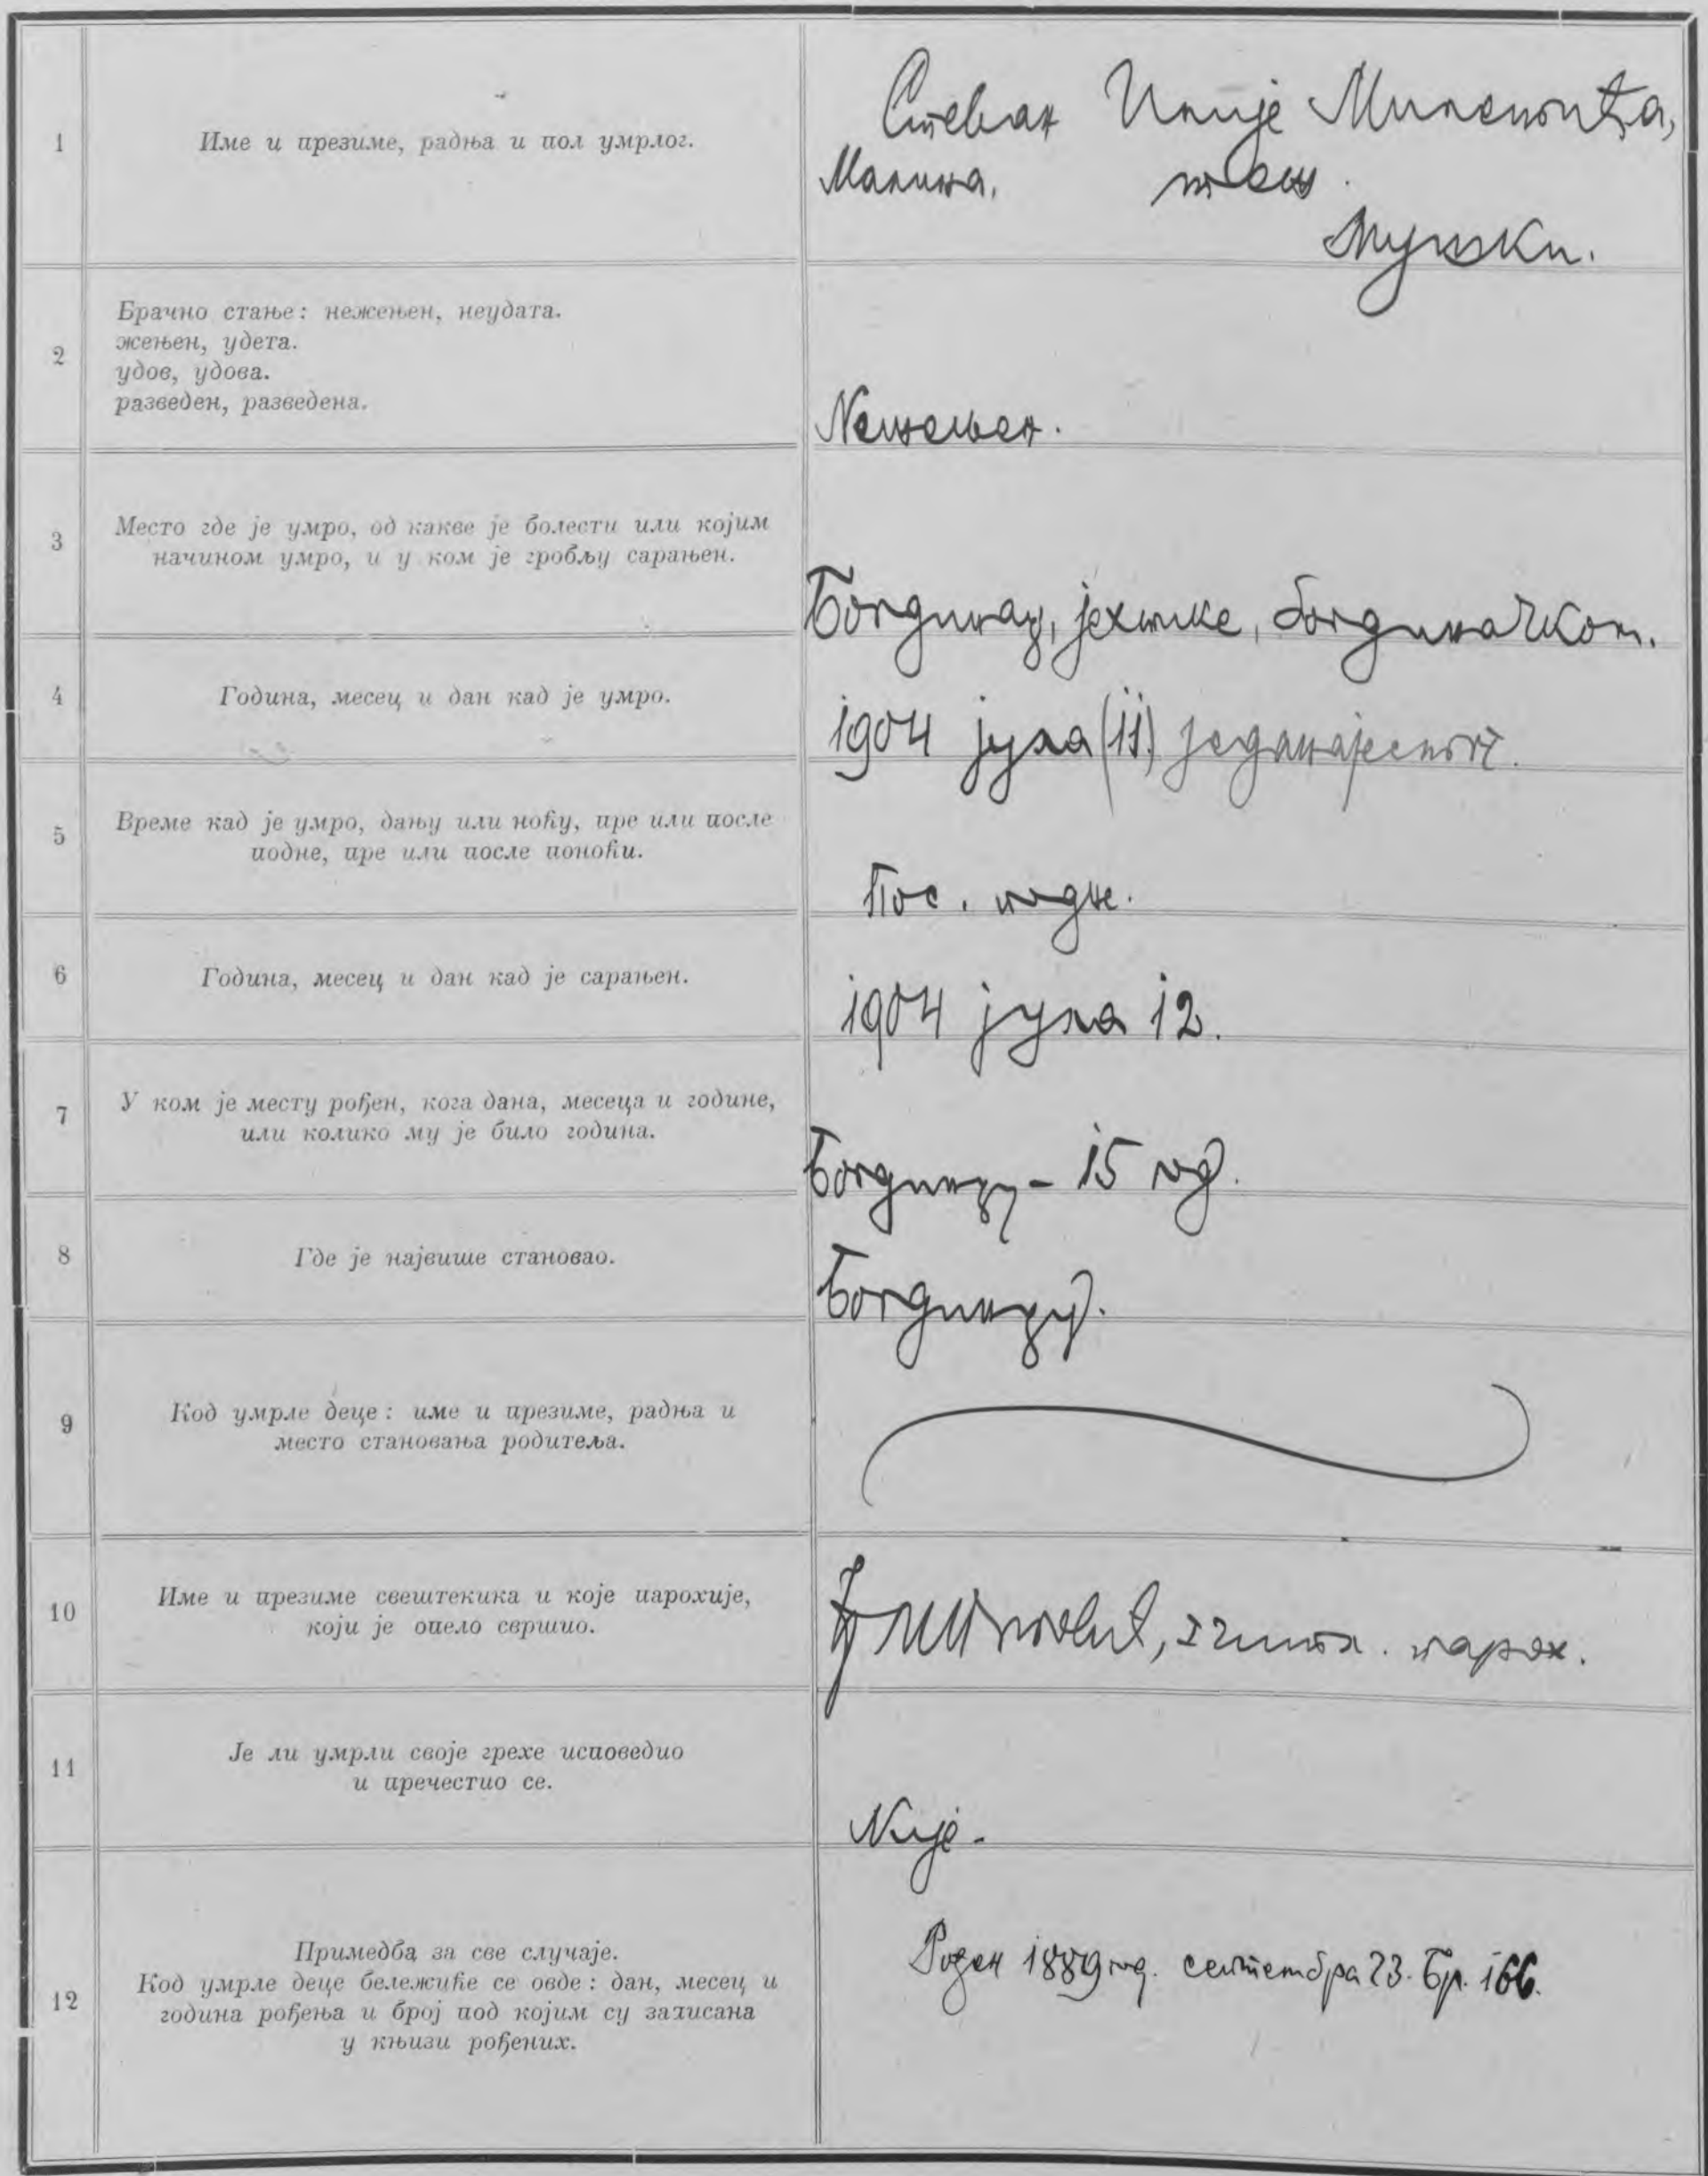 1
Име и презиме, радња и пол умрлог.
Стеван Илије
Малина,
Мушки.
2
Брачно стање: нежењен, неудата.
жењен, удета.
удов, удова.
разведен, разведена.
Нежењен.
3
Место где је умро, од какве је болести или којим
начином умро, и у ком је гробљу сарањен.
јехтике,
4
Година, месец и дан кад је умро.
1904 јула (11) једанајестог.
5
Време кад је умро, дању или ноћу, пре или после
подне, пре или после поноћи.
Пос. подне.
6
Година, месец и дан кад је сарањен.
1904 јула 12.
7
У ком је месту рођен, кога дана, месеца и године,
или колико му је било година.
15 год.
8
Где је највише становао.
9
Код умрле деце: име и презиме, радња и
место становања родитеља.
10
Име и презиме свештекика и које парохије,
који је опело свршио.
парох.
11
Је ли умрли своје грехе исповедио
и пречестио се.
Није -
12
Примедба за све случаје.
Код умрле деце бележиће се овде: дан, месец и
година рођења и број под којим су записана
у књизи рођених.
Рођен 1889 год. септембра 23. Бр. 166.